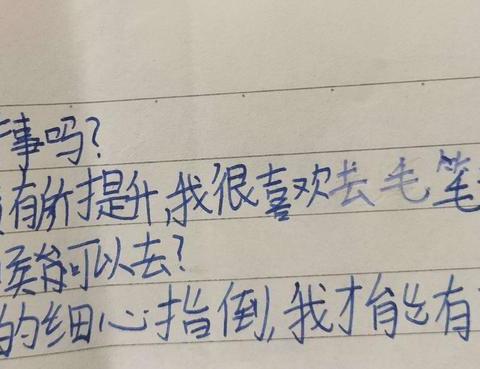 事吗?
有所提升,我很喜欢去毛笔
候能可以去?
的细心指倒,我才能有